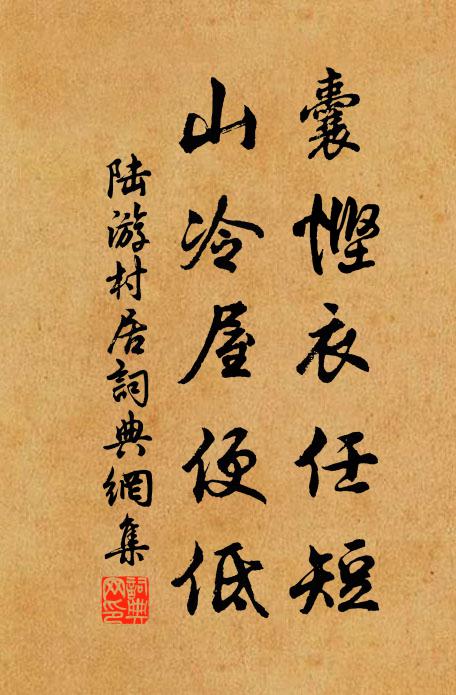 囊悭衣任短
山冷屋便低
陆游村居詞典網集
詞典网印